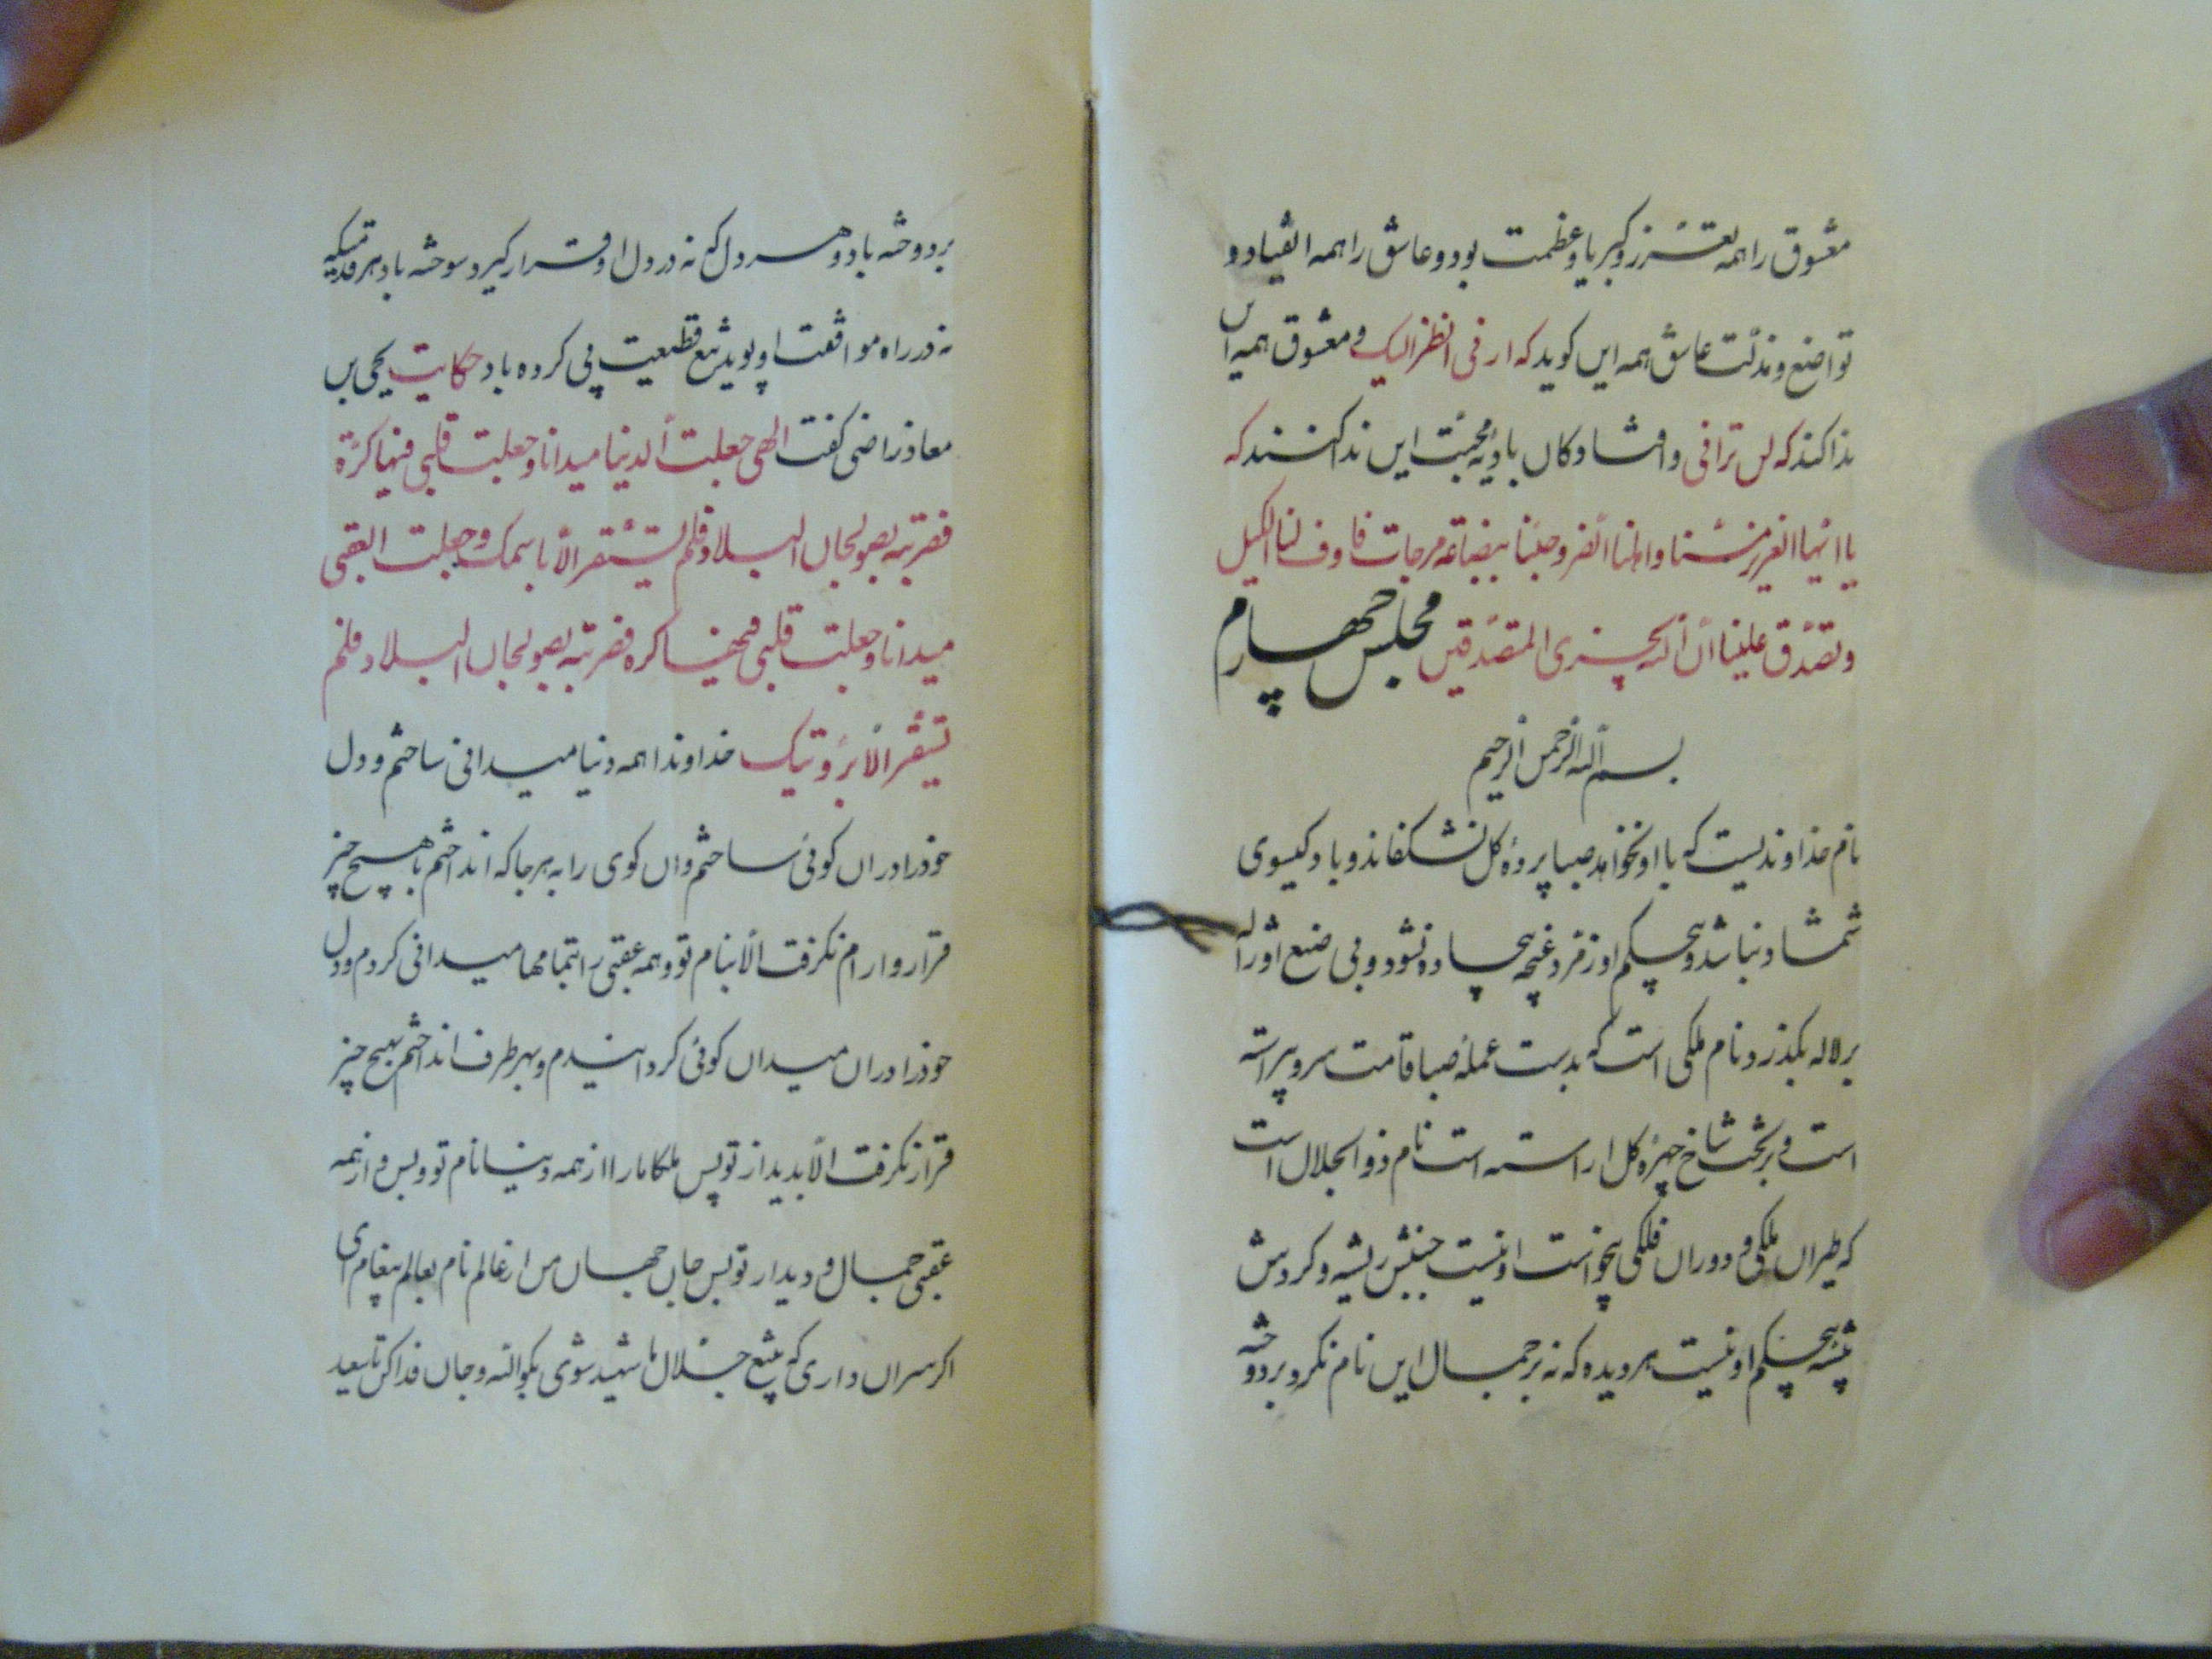 معشوق را همه تعزز و کبریا و عظمت بود و عاشق را همه انقیاد و
تواضع و مذلت عاشق همه این کوید که ارنی انظر الیک و معشوق همه این
ندا کند که لن ترانی و افتادکان بادیه محبت این ندا کنند که
یا ایها العزیز مسنا و اهلنا الضر و جئنا ببضاعه مزجات فاوف لنا الکیل
و تصدق علینا ان الله یجزی المتصدقین مجلس چهارم
بسم الله الرحمن الرحیم
نام خداوندیست که با او نخواهد صبا پرده کل نشکفاند و باد کیسوی
شمشاد نباشد و بیحکم او زمرد غنچه بیجاده نشود و بی صنع او ژاله
بر لاله نکذرد نام ملکی است که بدست عمله صبا قامت سرو پیراسته
است و بر تخت شاخ چهره کل اراسته است نام ذو الجلال است
که طیران ملکی و دوران فلکی بیخواست او نیست جنبش ریشه و کردش
پشه بیحکم او نیست هر دیده که نه بر جمال این نام نکرد بردوخته
بردوخته باد و هر دل که نه در دل او قرار کیرد سوخته باد هر قدمیکه
نه در راه موافقت او پوید بتیغ قطیعت پی کرده باد حکایت یحیی بن
معاذ راضی کفت الهی جعلت الدنیا میدانا و جعلت قلبی فیها کرة
فضربته بصولجان البلاد فلم یستقر الا باسمک و جعلت العقبی
میدانا و جعلت قلبی فیها کره فضربته بصولجان البلاد فلم
یستقر الا برؤیتک خداوندا همه دنیا میدانی ساختم و دل
خود را دران کوئی ساختم و ان کوی را به هر جا که انداختم با هیچ چیز
قرار و ارام نکرفت الا بنام تو و همه عقبی را بتمامها میدانی کردم و دل
خود را دران میدان کوئی کردانیدم و بهر طرف انداختم بهیچ چیز
قرار نکرفت الا بدیدار تو پس ملکا مارا از همه دنیا نام تو و بس و از همه
عقبی جمال و دیدار تو بس جان جهان من از عالم نام بعالم پیغام ای
اکر سر ان داری که بتیغ جلال ما شهید شوی بکو الله و جان فدا کن تا سعید